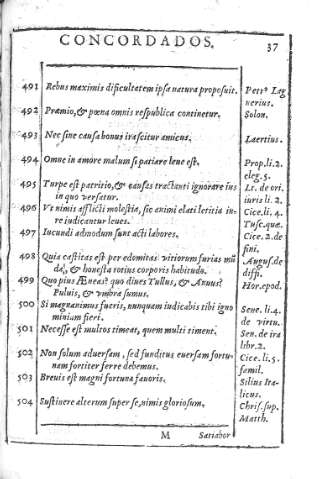 CONCORDADOS.
37
491 Rebus maximis dificultatem ipsa natura proposuit.
Petrº Lag
nerius.
492 Præmio, & pœna omnis respublica continetur.
Solon.
493 Nec sine causa bonus irascitur amicus.
Laertius.
494 Omne in amore malum si patiare leue est.
Prop. li. 2.
eleg. 5.
495 Turpe est patritio, & causas tractanti ignorare ius
in quo versatur.
Ls. de ori.
iuris li. 2.
496 Vt nimis afflicti molestia, sic animi elati letitia in-
re iudicantur leues.
Cice. li. 4.
Tusc. quæ.
497 Iucundi admodum sunt acti labores.
Cice. 2. de
fini.
498 Quia castitas est per edomitas vitiorum furias mū
da, & honesta totius corporis habitudo.
Augus. de
diffi.
499 Quo pius Æneas? quo diues Tullus, & Ancus?
Puluis, & vmbra sumus.
Hor. epod.
500 Si magnanimus fueris, nunquam iudicabis tibi igno
miniam fieri.
Sene. li. 4.
de virtu.
501 Necesse est multos timeat, quem multi timent.
Sen. de ira
libr. 2.
502 Non solum aduersam, sed funditus euersam fortu-
nam fortiter ferre debemus.
Cice. li. 5.
famil.
503 Breuis est magni fortuna fauoris.
Silius Ita-
licus.
504 Sustinere alterum super se, nimis gloriosum.
Chris. sup.
Matth.
M
Sariabor